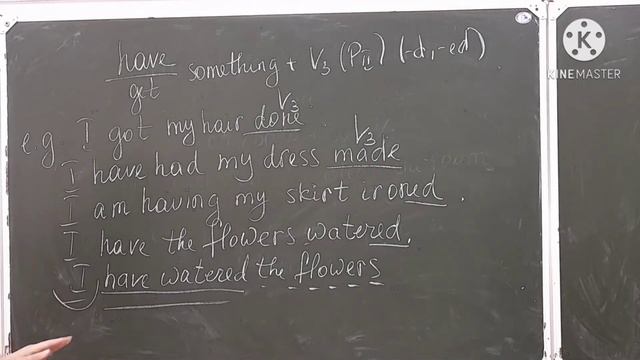 have
get something + V3 (PII) (-d, -ed)
V3
e.g I got my hair done.
V3
I have had my dress made
I am having my skirt ironed.
I have the flowers watered.
I have watered the flowers
K
KINEMASTER